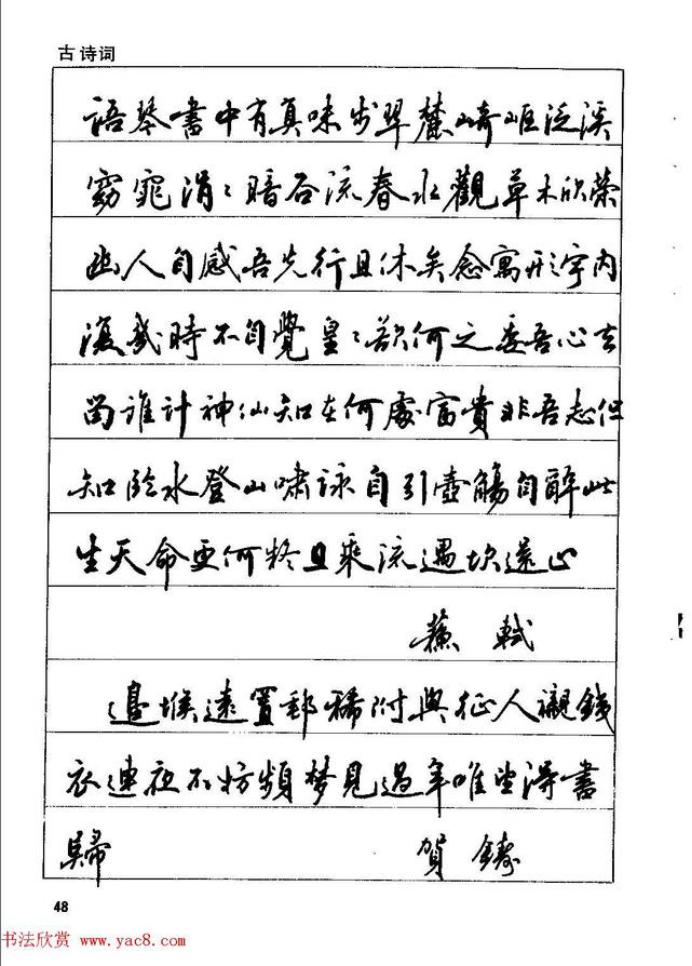 古诗词
語琴書中有真味步翠麓崎嶇泛溪
窈窕涓〻暗谷流春水觀草木欣榮
幽人自感吾先行且休矣念寓形宇内
復幾時不自覺皇〻欲何之委吾心去
留誰計神仙知在何處富貴非吾志但
知臨水登山嘯詠自引壺觴自醉此
生天命更何疑且乘流遇坎還止
蘇軾
邊堠遠置郵稀附與征人襯鐵
衣連夜不妨頻梦見過年唯望得書
歸 賀鑄
48
书法欣赏 www.yac8.com